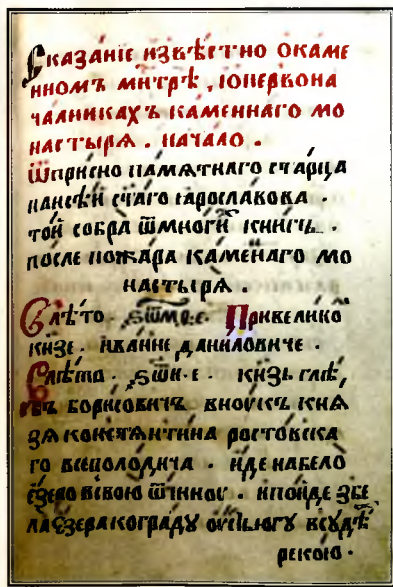 Сказаніе извѣстно окаме
нномъ мнтрѣ, юпервона
чалникахъ каменнаго мо
настырѧ. начало.
Ѿприсно памѧтнаго старца
паисѣи стаго ꙗрославова.
той собра ѿмноги книгъ.
после пожара каменаго мо
настырѧ.
Влѣто. Привелико
кнзе. иванне даниловиче.
Влѣта. кнзь глѣ,
бъ борисовичъ вноукъ кнѧ
зѧ константина ростовска
го всеволодича. иде набело
езеро всвою ѿчиноу. ипоиде збе
ла езера кограду оустьюгу всудѣ
рекою.